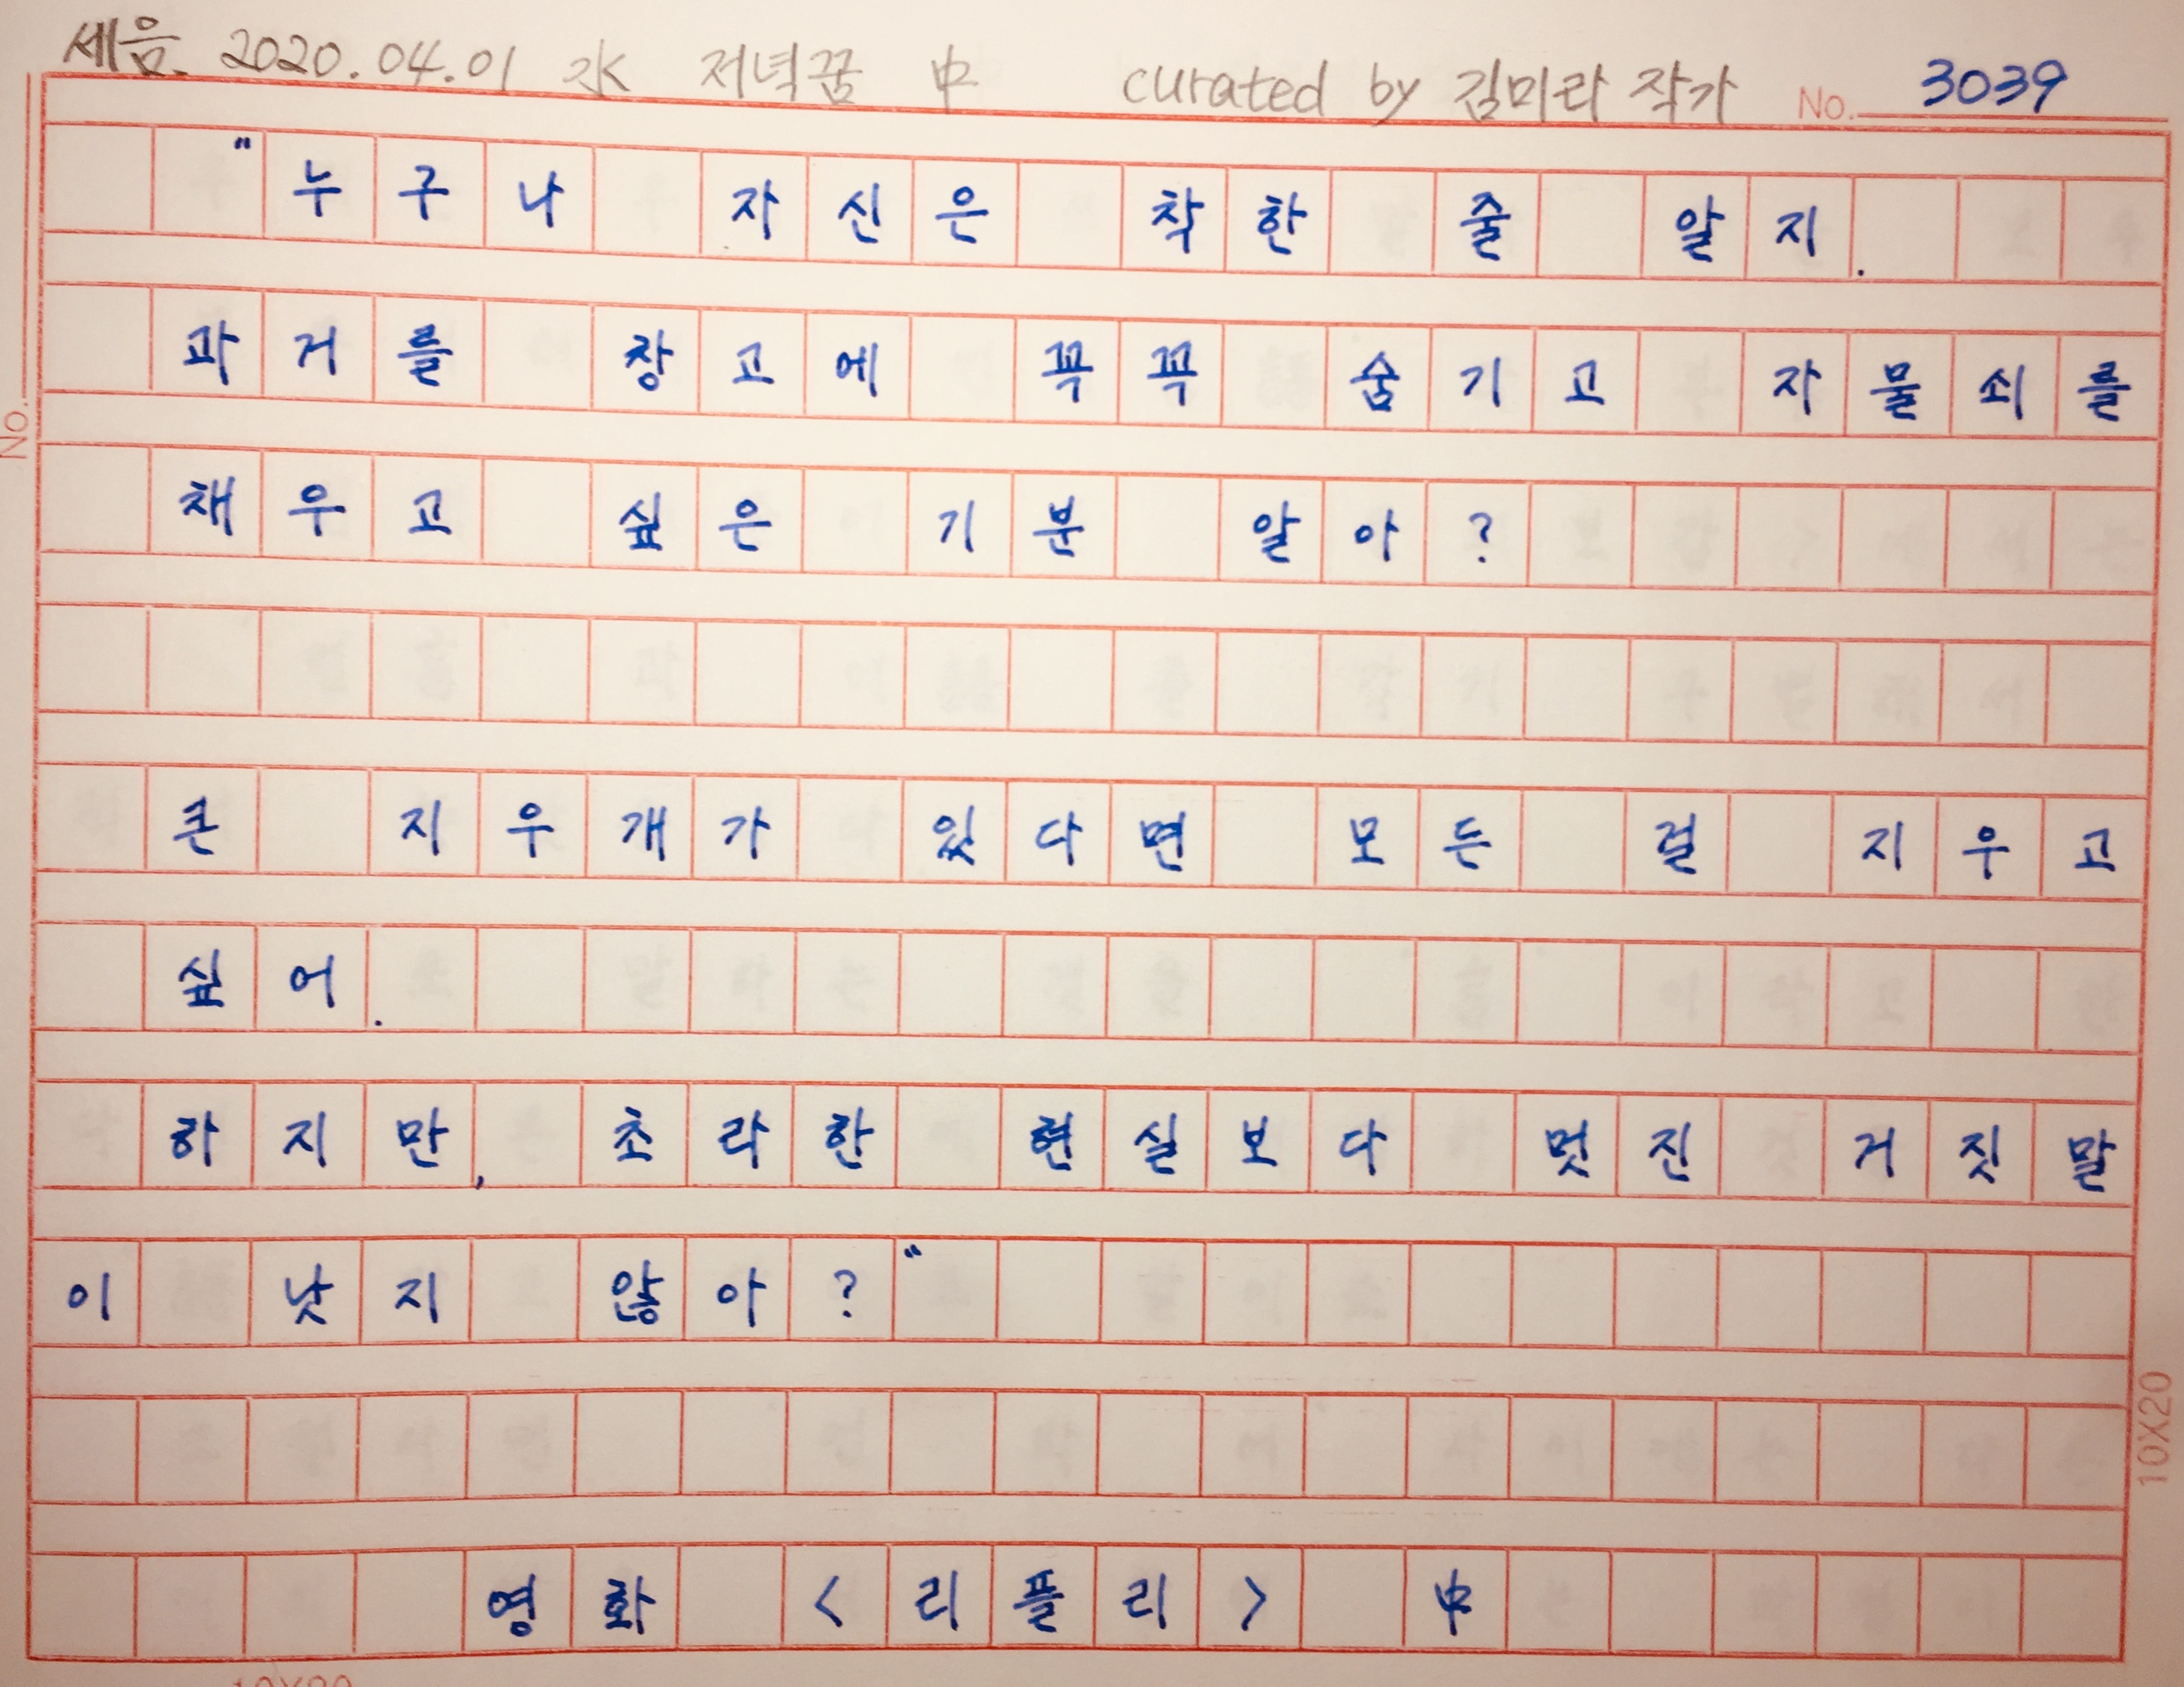 세음 2020.04.01 水 저녁꿈 中 curated by 김미라 작가 No. 3039
"누구나 자신은 착한 줄 알지.
과거를 창고에 꼭꼭 숨기고 자물쇠를
채우고 싶은 기분 알아?
큰 지우개가 있다면 모든 걸 지우고
싶어.
하지만, 초라한 현실보다 멋진 거짓말
이 낫지 않아?"
영화 <리플리> 中
No.
10X20
10X20